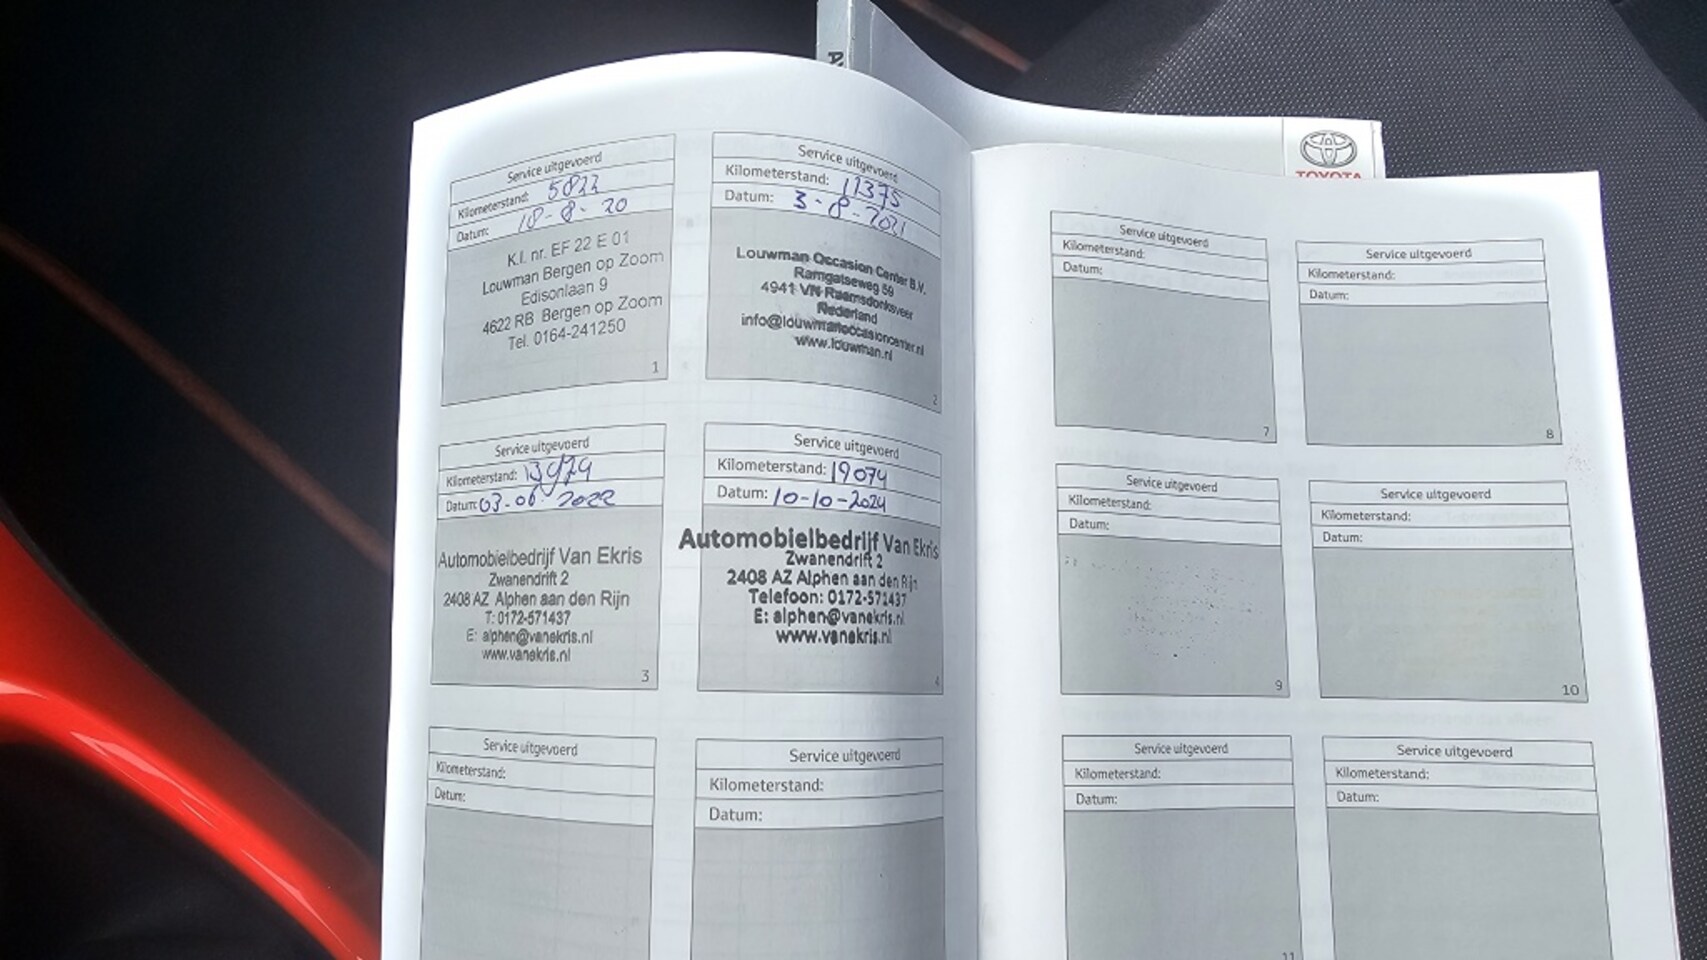 TOYOTA
Service uitgevoerd
Kilometerstand: 5822
Datum: 18-8-20
K.I. nr. EF 22 E 01
Louwman Bergen op Zoom
Edisonlaan 9
4622 RB Bergen op Zoom
Tel. 0164-241250
1
Service uitgevoerd
Kilometerstand: 11375
Datum: 3-8-2021
Louwman Occasion Center B.V.
Ramgatseweg 59
4941 VN Raamsdonksveer
Nederland
info@louwmanoccasioncenter.nl
www.louwman.nl
2
Service uitgevoerd
Kilometerstand:
Datum: 03-06-2022
Automobielbedrijf Van Ekris
Zwanendrift 2
2408 AZ Alphen aan den Rijn
T: 0172-571437
E: alphen@vanekris.nl
www.vanekris.nl
3
Service uitgevoerd
Kilometerstand: 19074
Datum: 10-10-2024
Automobielbedrijf Van Ekris
Zwanendrift 2
2408 AZ Alphen aan den Rijn
Telefoon: 0172-571437
E: alphen@vanekris.nl
www.vanekris.nl
4
Service uitgevoerd
Kilometerstand:
Datum:
Service uitgevoerd
Kilometerstand:
Datum:
Service uitgevoerd
Kilometerstand:
Datum:
7
Service uitgevoerd
Kilometerstand:
Datum:
8
Service uitgevoerd
Kilometerstand:
Datum:
9
Service uitgevoerd
Kilometerstand:
Datum:
10
Service uitgevoerd
Kilometerstand:
Datum:
11
Service uitgevoerd
Kilometerstand:
Datum: